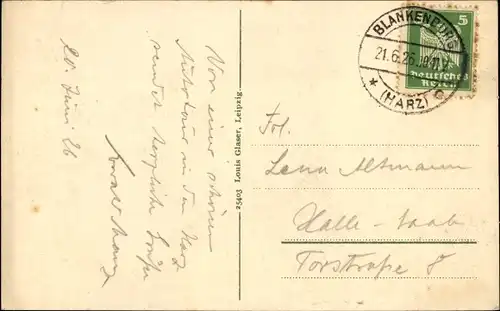 20. Juni 26
Von einer schönen
Autotour in den Harz
sendet herzliche Grüße
25403 Louis Glaser, Leipzig.
BLANKENBURG
21.6.26.
* (HARZ) c
5
Deutsches
Reich
Frl.
Lena Altmann
Halle-Saale
Torstraße 8